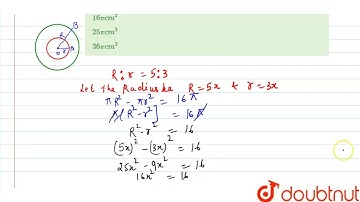 16πcm²
25πcm²
36πcm²
R
O r A
R : r = 5 : 3
Let The Radius be R = 5x & r = 3x
πR² - πr² = 16π
π[R² - r²] = 16π
R² - r² = 16
(5x)² - (3x)² = 16
25x² - 9x² = 16
16x² = 16
doubtnut